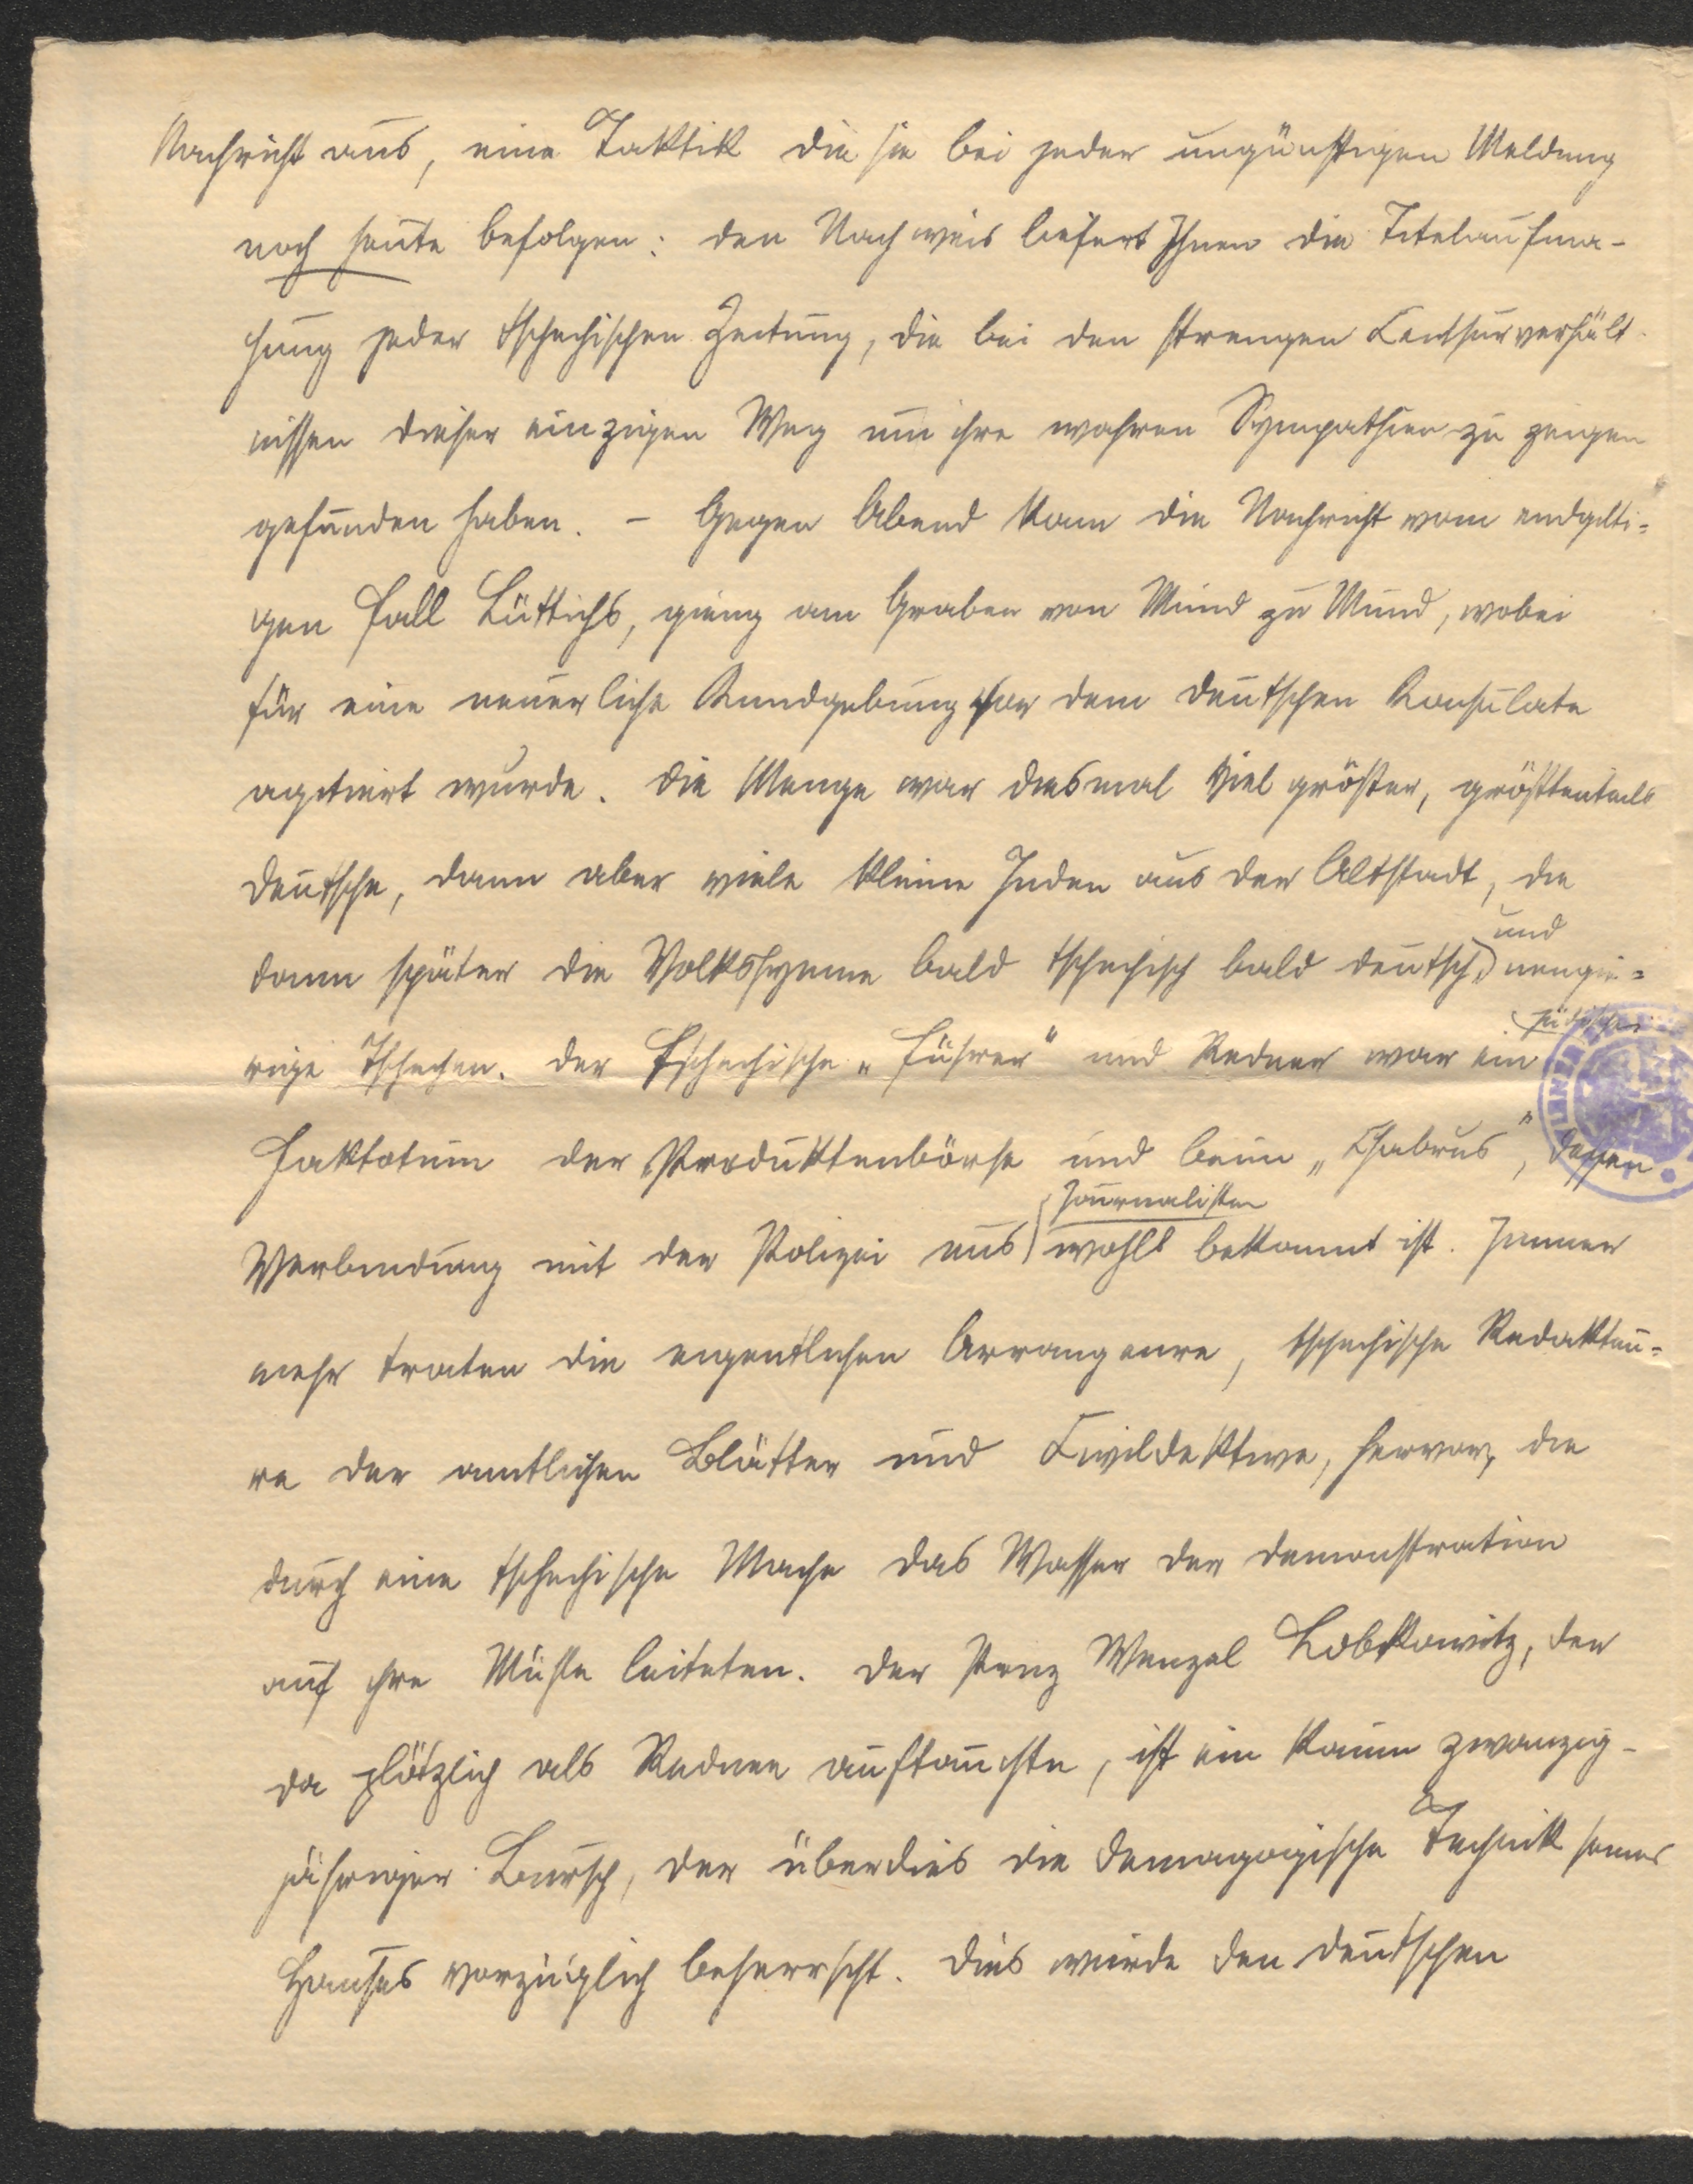 Nachricht aus, eine Taktik die sie bei jeder ungünstigen Meldung
noch heute befolgen: den Nachweis liefert Ihnen die Titelaufma-
chung jeder tschechischen Zeitung, die bei den strengen Censurverhält-
nissen diesen einzigen Weg um ihre wahren Sympathien zu zeigen
gefunden haben. – Gegen Abend kam die Nachricht vom endgilti-
gen Fall Lüttichs, gieng am Graben von Mund zu Mund, wobei
für eine neuerliche Kundgebung vor dem deutschen Konsulate
agitiert wurde. Die Menge war diesmal viel größer, größtenteils
Deutsche, dann aber viele kleine Juden aus der Altstadt, die
und
dann später die Volkshymne bald tschechisch bald deutsch, neugie-
jüdischer
rige Tschechen. Der tschechische „Führer“ und Redner war ein
Faktotum der Produktenbörse und beim „Chabrus“, dessen
Journalisten
Verbindung mit der Polizei uns wohl bekannt ist. Immer
mehr traten die eigentlichen Arrangeure, tschechische Redakteu-
re der amtlichen Blätter und Civildektive, hervor, die
durch eine tschechische Mache das Wasser der Demonstration
auf ihre Mühle leiteten. Der Prinz Wenzel Lobkowitz, der
da plötzlich als Redner auftauchte, ist ein kaum zwanzig-
jähriger Bursch, der überdies die demagogische Technik seines
Hauses vorzüglich beherrscht. Dies wurde den Deutschen